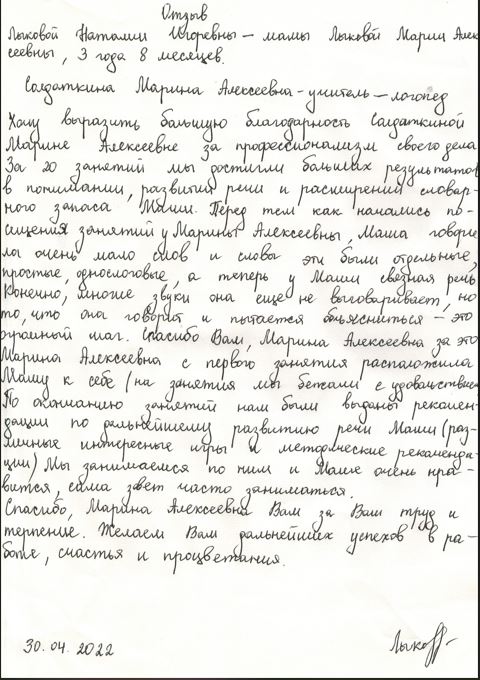 Отзыв
Лыковой Наталии Игоревны – мамы Лыковой Марии Алек
сеевны, 3 года 8 месяцев.
Солдаткина Марина Алексеевна – учитель – логопед
Хочу выразить большую благодарность Солдаткиной
Марине Алексеевне за профессионализм своего дела
За 20 занятий мы достигли больших результатов
в понимании, развитии речи и расширении словар-
ного запаса Маши. Перед тем как начались по-
сещения занятий у Марины Алексеевны, Маша говори
ла очень мало слов и слова эти были отдельные,
простые, однослоговые, а теперь у Маши связная речь
Конечно, многие звуки она еще не выговаривает, но
то, что она говорит и пытается объясниться – это
огромный шаг. Спасибо Вам, Марина Алексеевна за это
Марина Алексеевна с первого занятия расположила
Машу к себе (на занятия мы бежали с удовольствием
По окончанию занятий нам были выданы рекомен-
дации по дальнейшему развитию речи Маши (раз-
личные интересные игры и методические рекоменда-
ции) Мы занимаемся по ним и Маше очень нра-
вится, сама зовет часто заниматься.
Спасибо, Марина Алексеевна Вам за Ваш труд и
терпение. Желаем Вам дальнейших успехов в ра-
боте, счастья и процветания.
30.04.2022